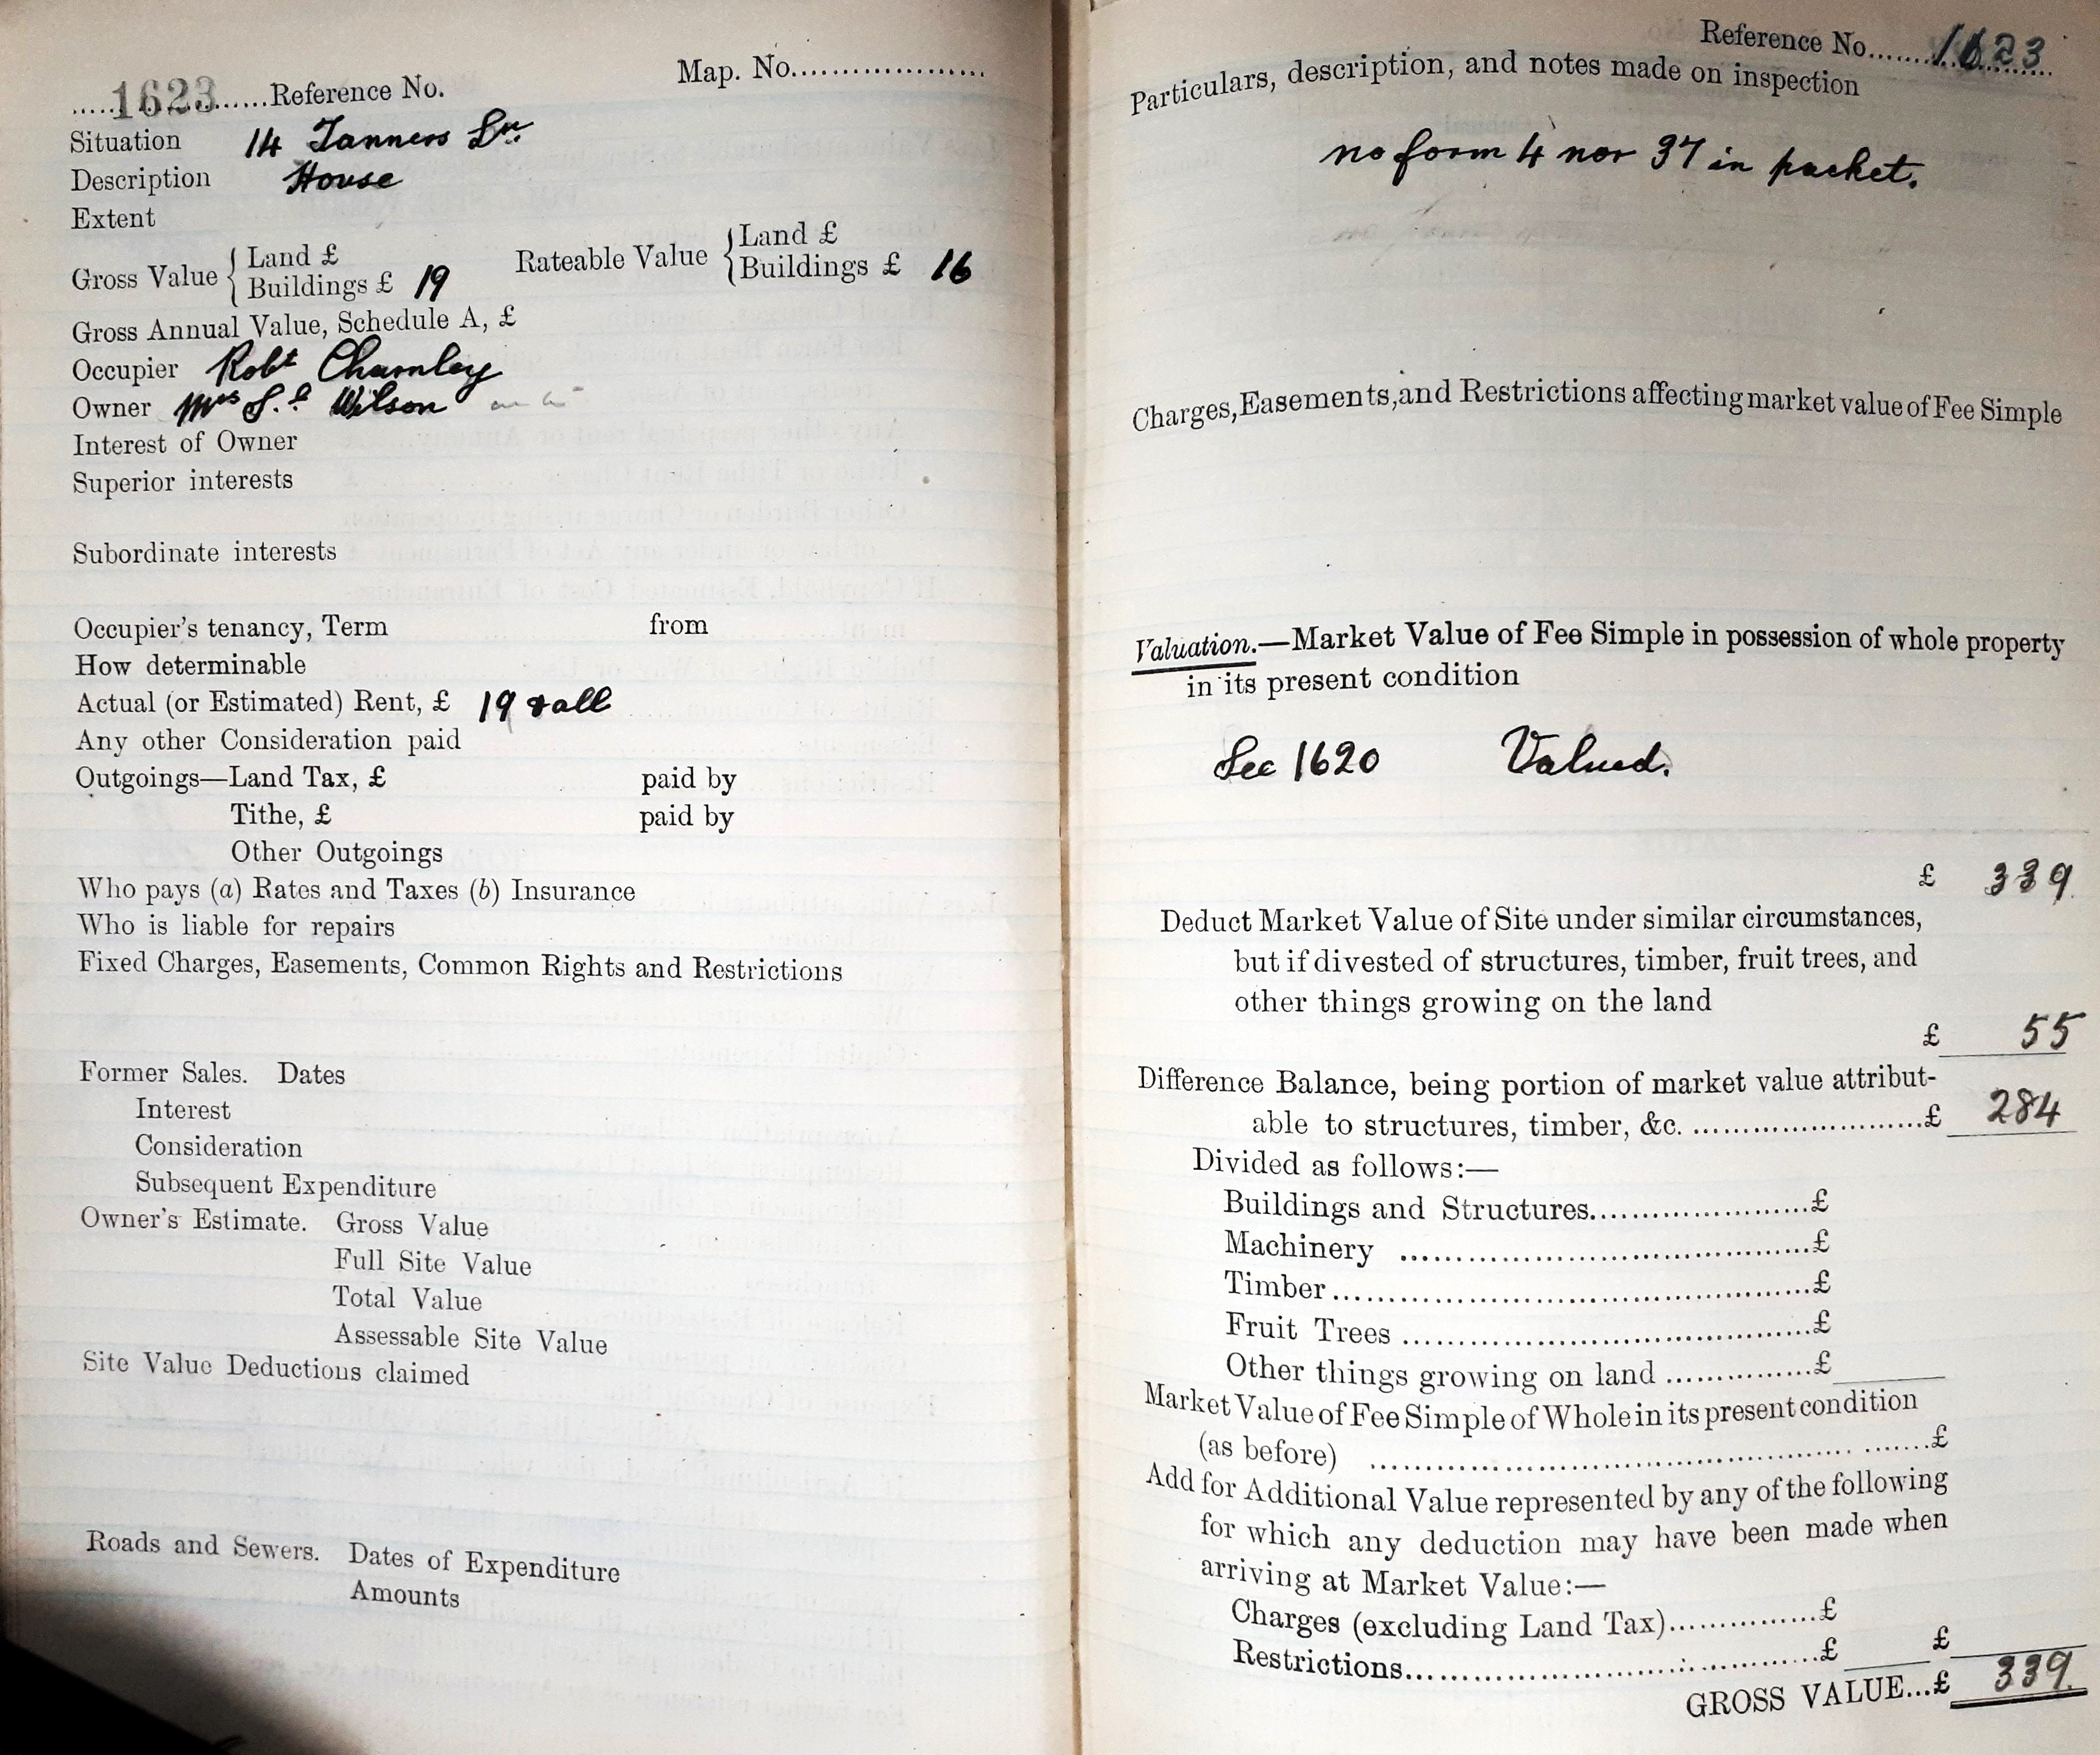 .....1623......Reference No.
Map. No...................
Situation 14 Tanners Ln.
Description House
Extent
Gross Value { Land £
Buildings £ 19
Rateable Value { Land £
Buildings £ 16
Gross Annual Value, Schedule A, £
Occupier Robt Charnley
Owner Mrs S. E Wilson
Interest of Owner
Superior interests
Subordinate interests
Occupier's tenancy, Term from
How determinable
Actual (or Estimated) Rent, £ 19 & all
Any other Consideration paid
Outgoings—Land Tax, £ paid by
Tithe, £ paid by
Other Outgoings
Who pays (a) Rates and Taxes (b) Insurance
Who is liable for repairs
Fixed Charges, Easements, Common Rights and Restrictions
Former Sales. Dates
Interest
Consideration
Subsequent Expenditure
Owner's Estimate. Gross Value
Full Site Value
Total Value
Assessable Site Value
Site Value Deductions claimed
Roads and Sewers. Dates of Expenditure
Amounts
Reference No.......1623
Particulars, description, and notes made on inspection
no form 4 nor 37 in packet.
Charges, Easements, and Restrictions affecting market value of Fee Simple
Valuation.—Market Value of Fee Simple in possession of whole property
in its present condition
See 1620 Valued.
£ 339.
Deduct Market Value of Site under similar circumstances,
but if divested of structures, timber, fruit trees, and
other things growing on the land
£ 55
Difference Balance, being portion of market value attribut-
able to structures, timber, &c. ........................£ 284
Divided as follows:—
Buildings and Structures......................£
Machinery ..........................................£
Timber................................................£
Fruit Trees .........................................£
Other things growing on land ...............£
Market Value of Fee Simple of Whole in its present condition
(as before) ..........................................................£
Add for Additional Value represented by any of the following
for which any deduction may have been made when
arriving at Market Value:—
Charges (excluding Land Tax)...............£
Restrictions..........................................£ £
GROSS VALUE...£ 339.